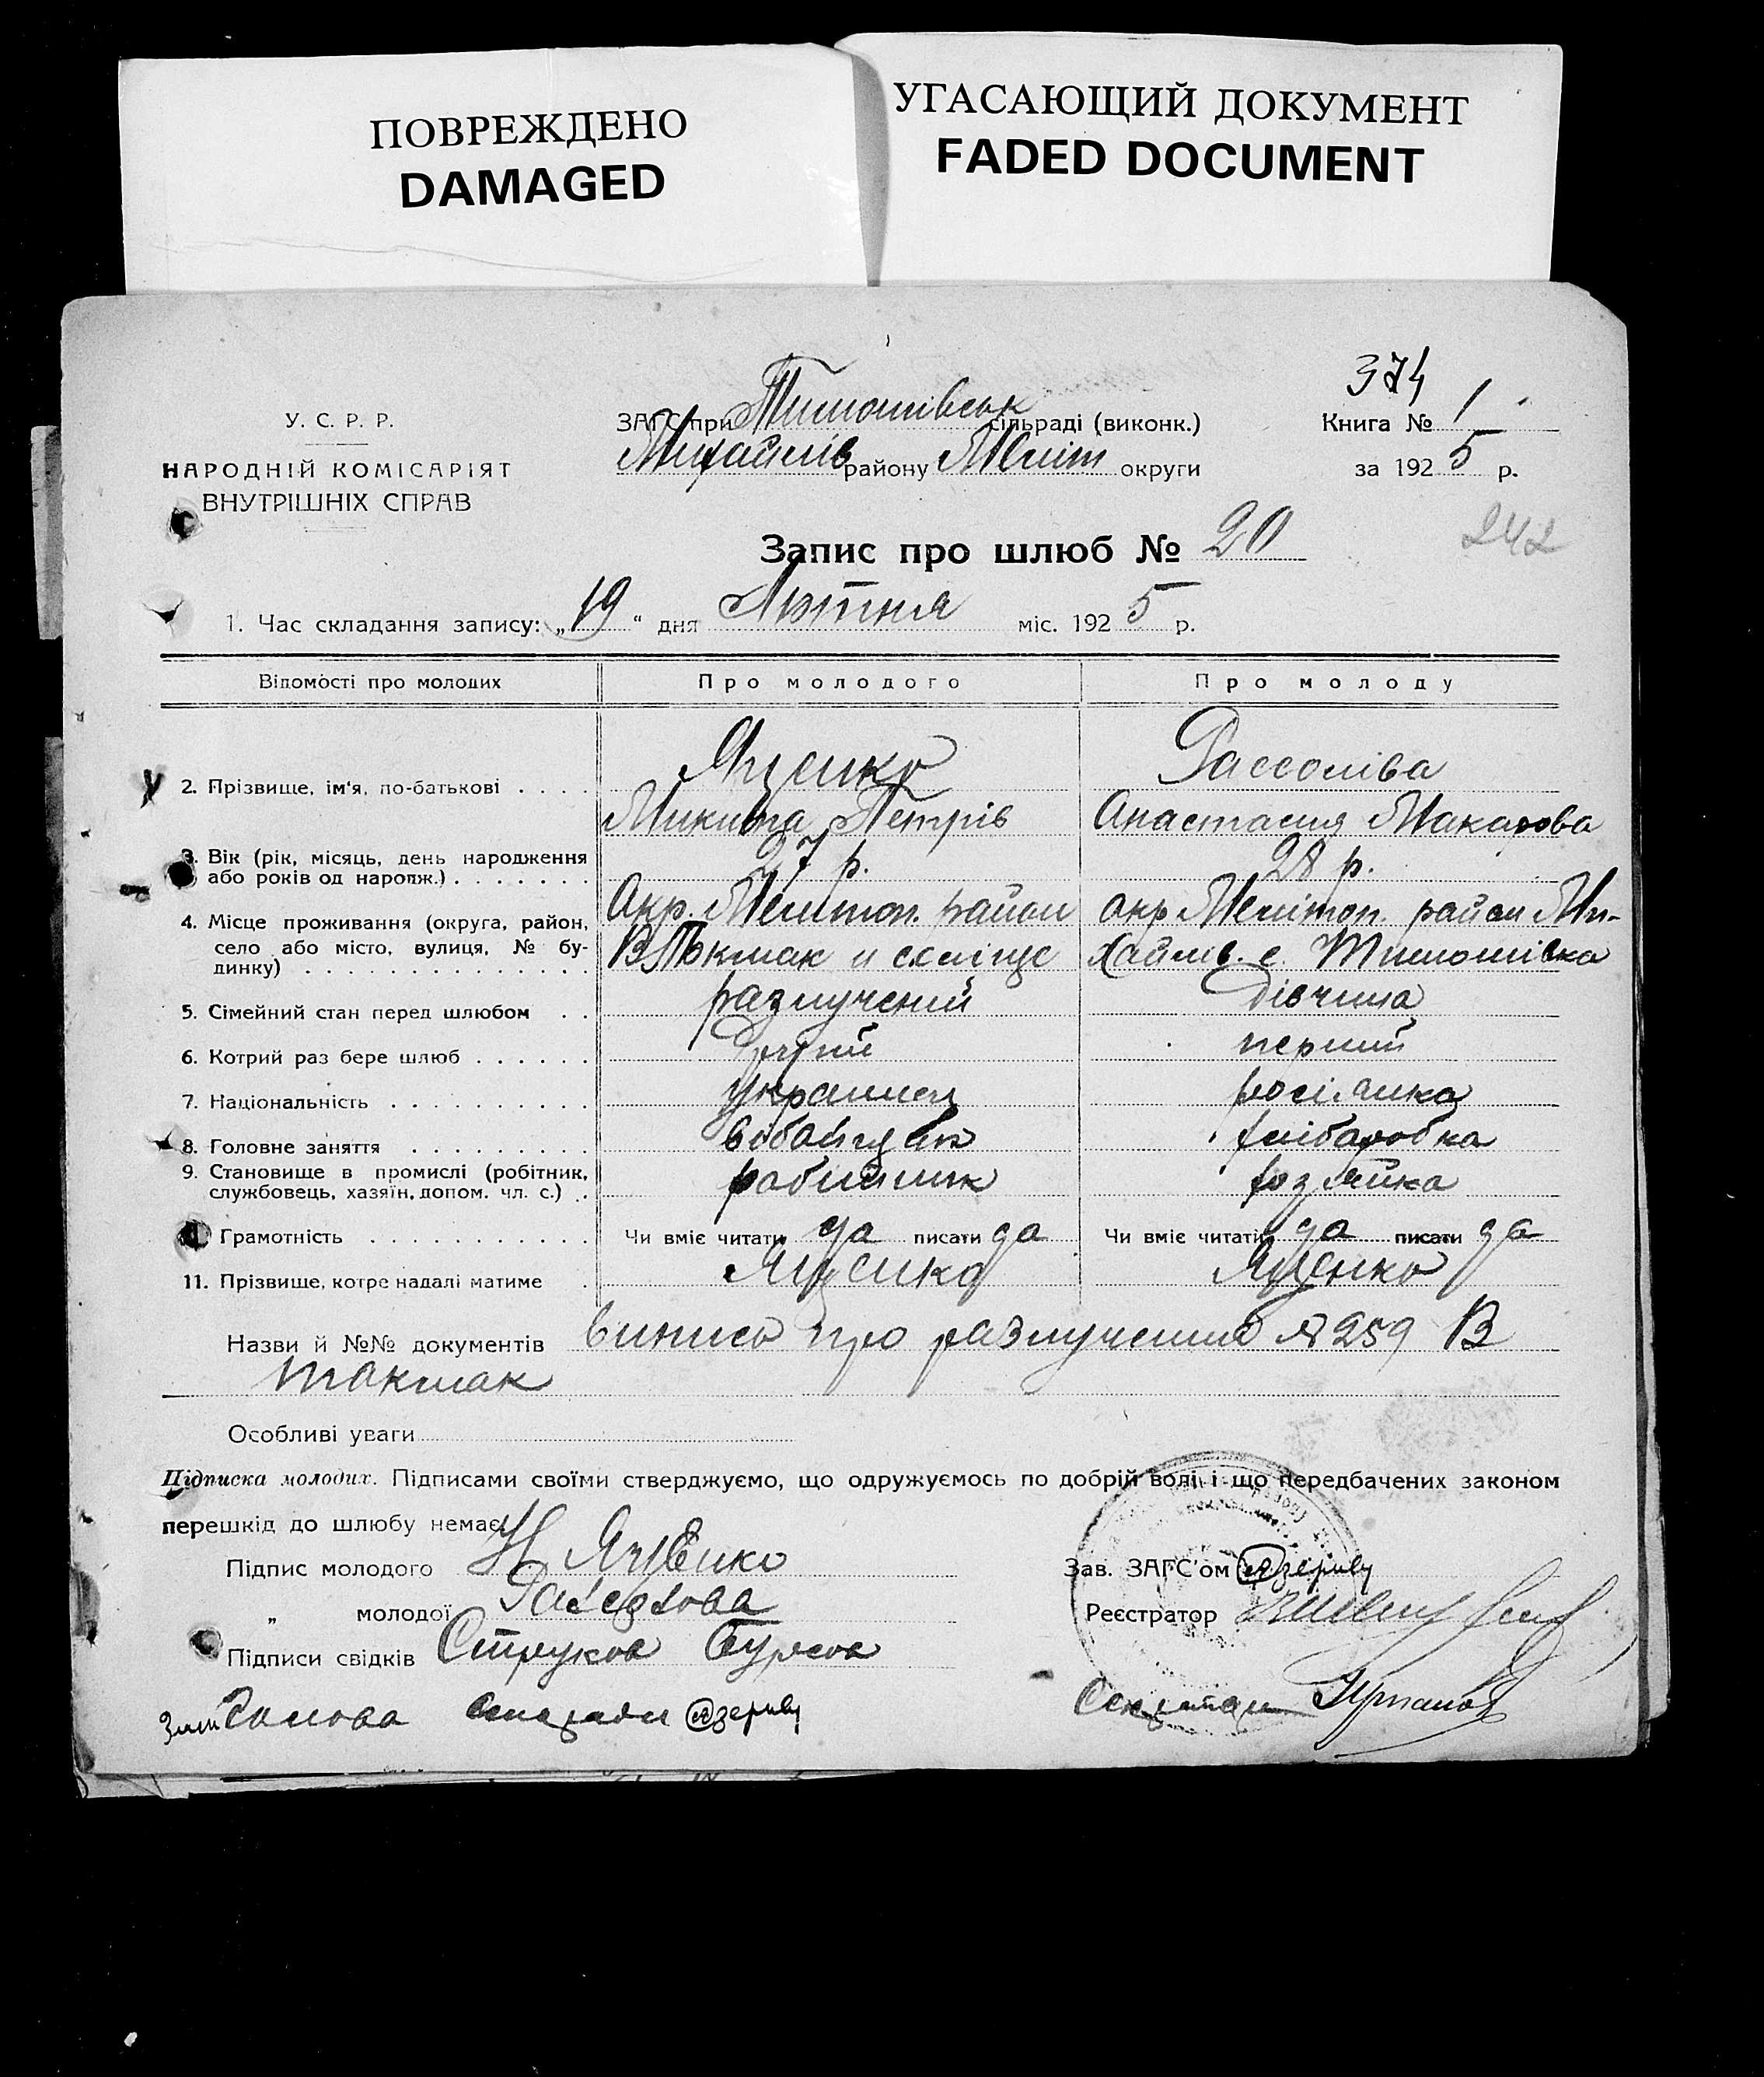 ПОВРЕЖДЕНО
DAMAGED
УГАСАЮЩИЙ ДОКУМЕНТ
FADED DOCUMENT
374
У. С. Р. Р.
НАРОДНІЙ КОМІСАРІЯТ
ВНУТРІШНІХ СПРАВ
ЗАГС при Тимошівськ сільраді (виконк.)
Михайлів району Меліт округи
Книга № 1
за 1925 р.
Запис про шлюб № 20
242
1. Час складання запису: „19“ дня Лютня міс. 1925 р.
Відомості про молодих Про молодого Про молоду
Яценко Рассоліва
2. Прізвище, ім'я, по-батькові . . . .
Микита Петрів Анастасия Макарова
3. Вік (рік, місяць, день народження
або років од нарожд.) . . . . . . . 27 р. 28 р.
4. Місце проживання (округа, район, Окр. Мелітоп. район окр Мелітоп. район Ми-
село або місто, вулиця, № бу- В Токмак хайлів. с. Тимошівка
динку) . . . . . . . . . . . . . .
5. Сімейний стан перед шлюбом . . разлучений дівчина
6. Котрий раз бере шлюб . . . . . . другий перший
7. Національність . . . . . . . . . . українец росіянка
8. Головне заняття . . . . . . . . . хліборобка
9. Становище в промислі (робітник,
службовець, хазяїн, допом. чл. с.) . робітник хозяйка
Грамотність . . . . . . . . . . . Чи вміє читати да писати да Чи вміє читати да писати да
11. Прізвище, котре надалі матиме . Яценко Яценко
Назви й №№ документів випись про разлучения № 259 В
токмак
Особливі уваги
Підписка молодих. Підписами своїми стверджуємо, що одружуємось по добрій волі і що передбачених законом
перешкід до шлюбу немає.
Підпис молодого Н Яценко
„ молодої
Підписи свідків Струков
Зав. ЗАГС'ом
Реєстратор
Секретар